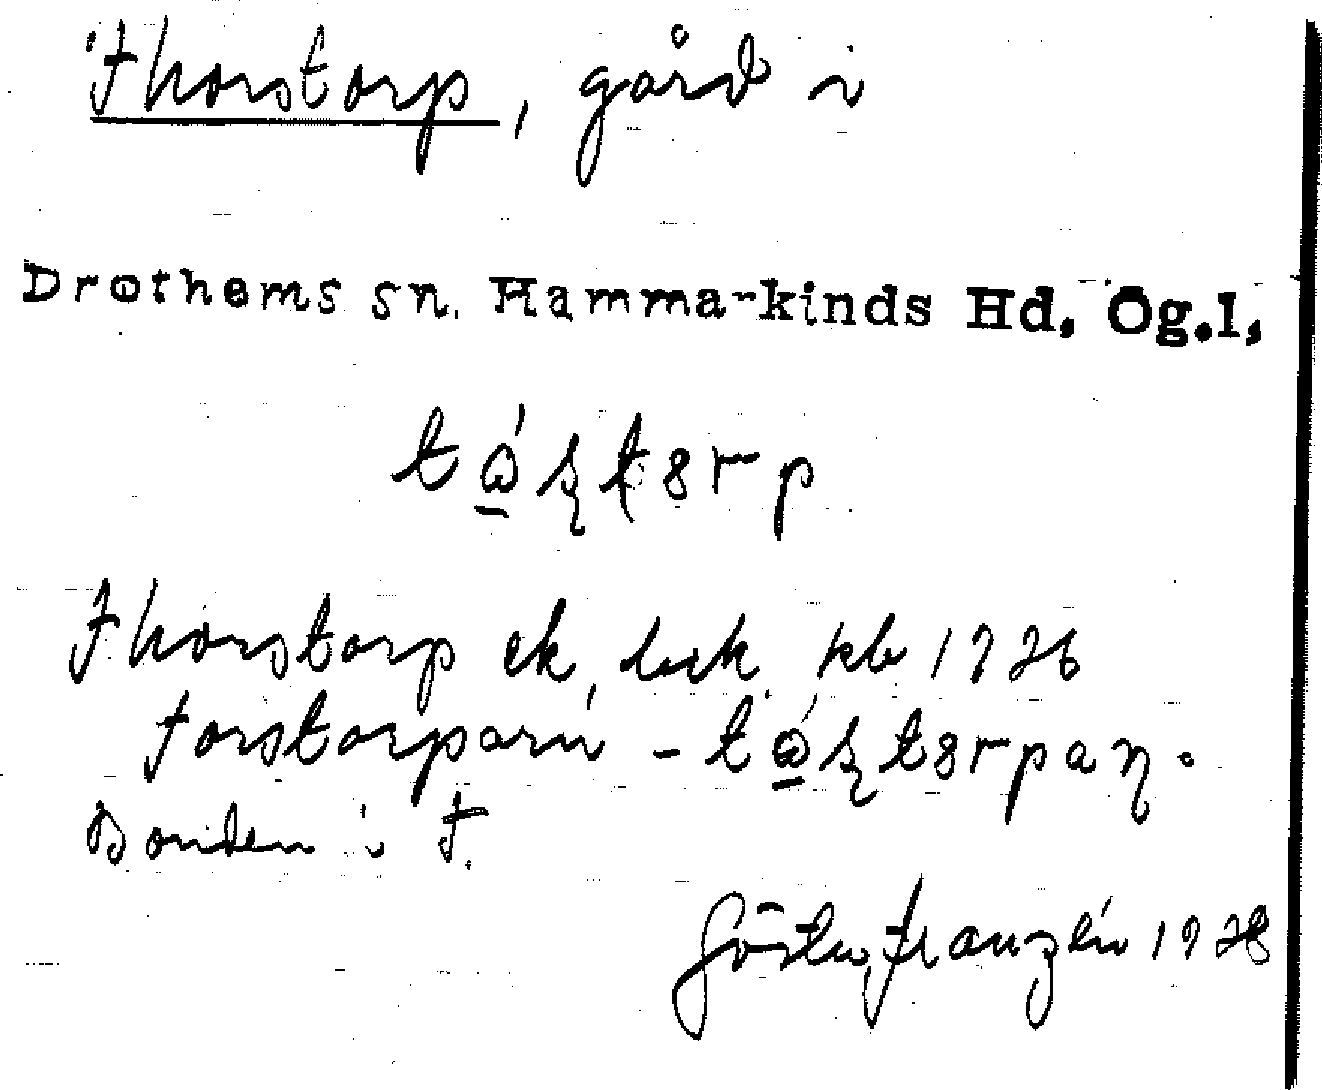 Thorstorp, gård i
Drothems sn. Hamma-kinds Hd, Ög.l,
Thorstorp ek, kb 1926
Torstorparn -
Bonden i T.
Gösta Franzén 1928